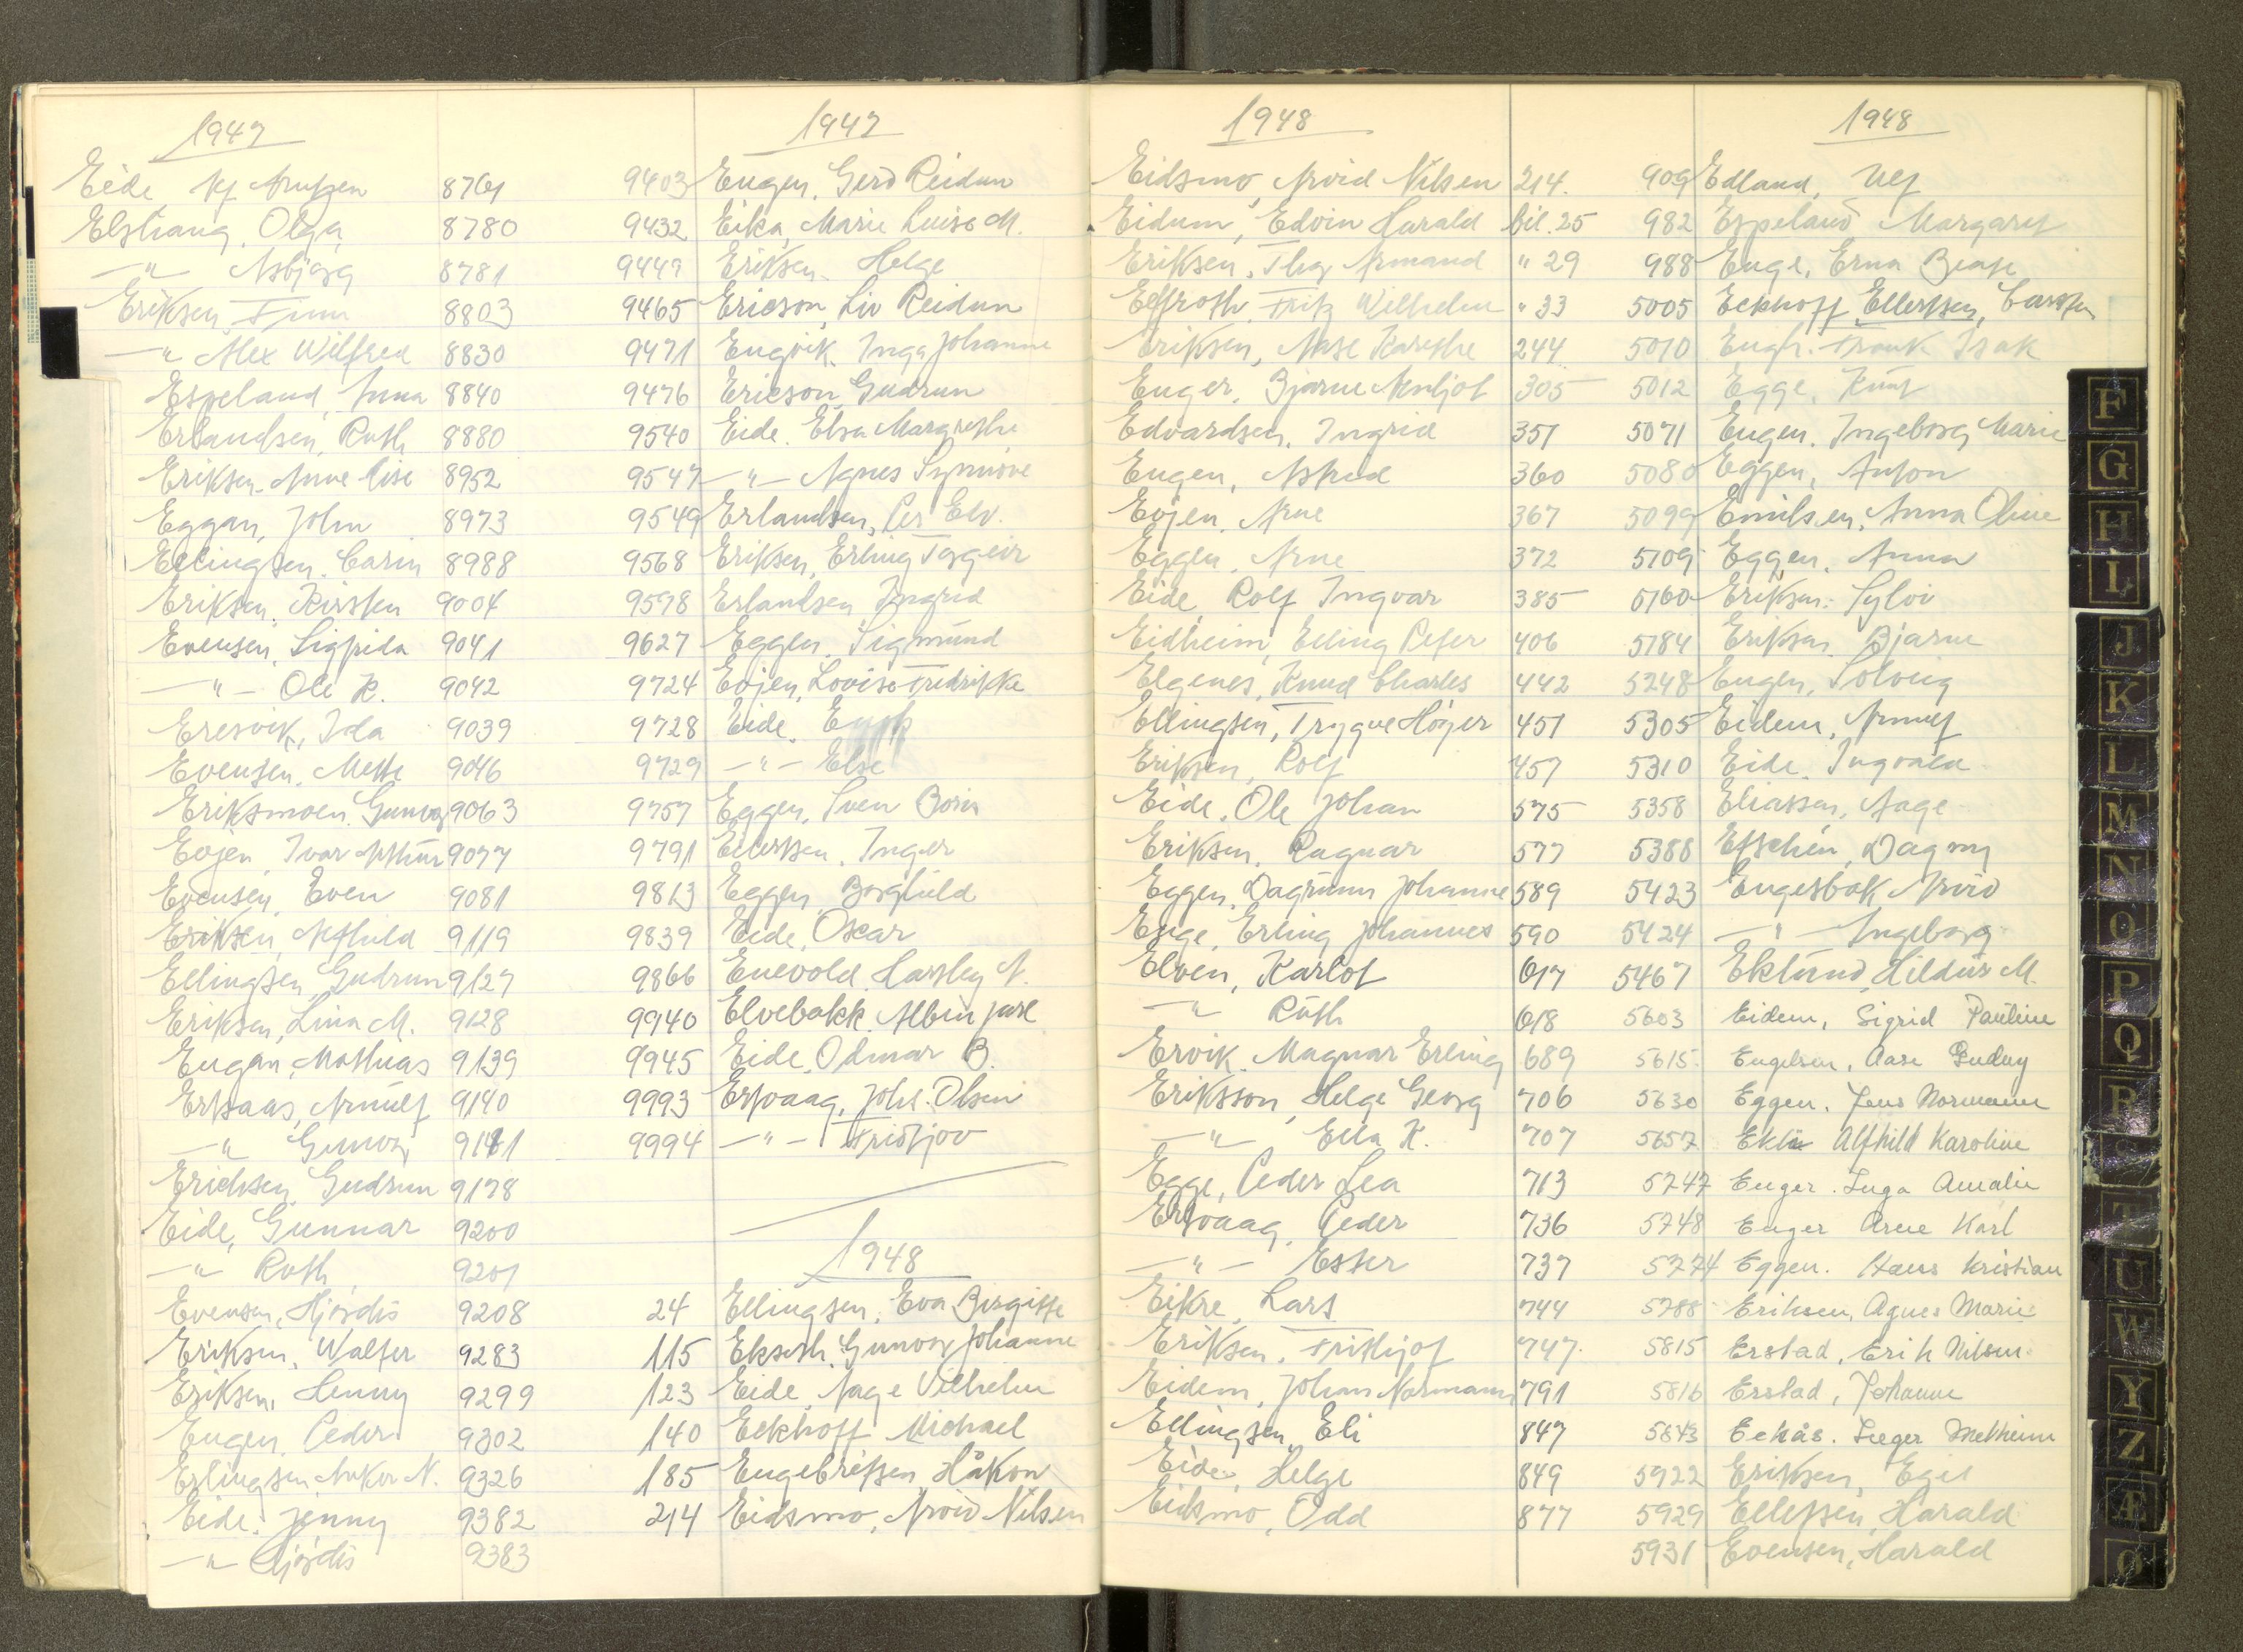 1947
Eide 8761
Elstrang, Olga 8780
—"— Asbjørg 8781
Eriksen, Finn 8803
—"— Alex Wilfred 8830
Espeland, Anna 8840
Erlandsen, Ruth 8880
Eriksen, Anne Lise 8952
Eggan, John 8973
Ellingsen, Carin 8988
Eriksen, Kirsten 9004
Evensen, Sigfrida 9041
—"— Ole K. 9042
Eresvik, Ida 9039
Evensen, Mette 9046
Eriksmoen, Gunvor 9063
Evjen, Ivar Arthur 9077
Evensen, Even 9081
Eriksen, Alfhild 9119
Ellingsen, Gudrun 9127
Eriksen, Lina M. 9128
Engan, Mathias 9139
Ertsaas, Arnulf 9140
—"— Gunvor 9141
Erichsen, Gudrun 9178
Eide, Gunnar 9200
—"— Ruth 9201
Evensen, Hjørdis 9208
Eriksen, Walter 9283
Eriksen, Henny 9299
Engen, Peder 9302
Erlingsen, Anker N. 9326
Eide, Jenny 9382
—"— Hjørdis 9383
1947
9403 Engen, Gerd Reidun
9432 Eika, Marie Luise M.
9447 Eriksen, Helge
9465 Ericson, Liv Reidun
9471 Engvik, Inga Johanne
9476 Ericson, Gudrun
9540 Eide, Elsa Margrethe
9547 —"— Agnes Synnøve
9549 Erlandsen, Per Elv.
9568 Eriksen, Erling Torgeir
9598 Erlandsen, Ingrid
9627 Eggen, Sigmund
9724 Evjen, Lovise Fredrikke
9728 Eide,
9729 —"— Else
9757 Eggen, Sven Boris
9791 Ellertsen, Inger
9813 Eggen, Borghild
9839 Eide, Oscar
9866 Enevold, Harsley A.
9940 Elvebakk, Albin Jarl
9945 Eide, Odmar B.
9993 Ertvaag, Johs. Olsen
9994 —"— Fridtjov
1948
24 Ellingsen, Eva Birgitte
115 Ekseth, Gunvor Johanne
123 Eide, Aage Vilhelm
140 Eckhoff, Michael
185 Engebretsen, Håkon
214 Eidsmo, Arvid Nilsen
1948
Eidsmo, Arvid Nilsen 214.
Eidum, Edvin Harald bil. 25
Eriksen, Thor Armand " 29
Elfroth, Fritz Wilhelm " 33
Eriksen, Aase Karethe 244
Enger, Bjarne Arnljot 305
Edvardsen, Ingrid 351
Engen, Astrid 360
Evjen, Arne 367
Eggen, Arne 372
Eide, Rolf Ingvar 385
Eidheim, Elling Peter 406
Elgenes, Knud Charles 442
Ellingsen, Trygve Høyer 451
Eriksen, Rolf 457
Eide, Ole Johan 575
Eriksen, Ragnar 577
Eggen, Dagrunn Johanne 589
Enge, Erling Johannes 590
Elven, Karlot 617
—"— Ruth 618
Ervik, Magnar Erling 689
Eriksson, Helge Georg 706
—"— Ella K. 707
Egge, Peder Lea 713
Ertvaag, Peder 736
—"— Ester 737
Eikre, Lars 744
Eriksen, Frithjof 747.
Eidem, Johan Normann 791
Ellingsen, Eli 847
Eide, Helge 849
Eidsmo, Odd 877
1948
909 Edland, Ulf
982 Espeland, Margaret
988 Enge, Erna Beate
5005 Eckhoff Ellertsen, Carsten
5010 Engh, Frank Isak
5012 Egge, Knut
5071 Engen, Ingeborg Marie
5080 Eggen, Anton
5099 Emilsen, Anna Oline
5109 Eggen, Anna
5160 Eriksen, Sylvi
5184 Eriksen, Bjarne
5248 Engen, Solveig
5305 Eidem, Arnulf
5310 Eide, Ingvald
5358 Eliassen, Aage
5388 Etschén, Dagny
5423 Engesbak, Arvid
5424 —"— Ingeborg
5467 Eklund, Hildur M.
5603 Eidem, Sigrid Pauline
5615 Engelsen, Aase Gudny
5630 Eggen, Jens Normann
5657 Ekli Alfhild Karoline
5747 Enger, Inga Amalie
5748 Enger Arne Karl
5774 Eggen, Hans Kristian
5788 Eriksen, Agnes Marie
5815 Erstad, Erik Nilsen
5816 Erstad, Johanne
5843 Echås.
5922 Eriksen, Egil
5929 Elletsen, Harald
5931 Evensen, Harald
F
G
H
I
J
K
L
M
N
O
P
Q
R
S
T
U
W
Y
Z
Æ
Ø